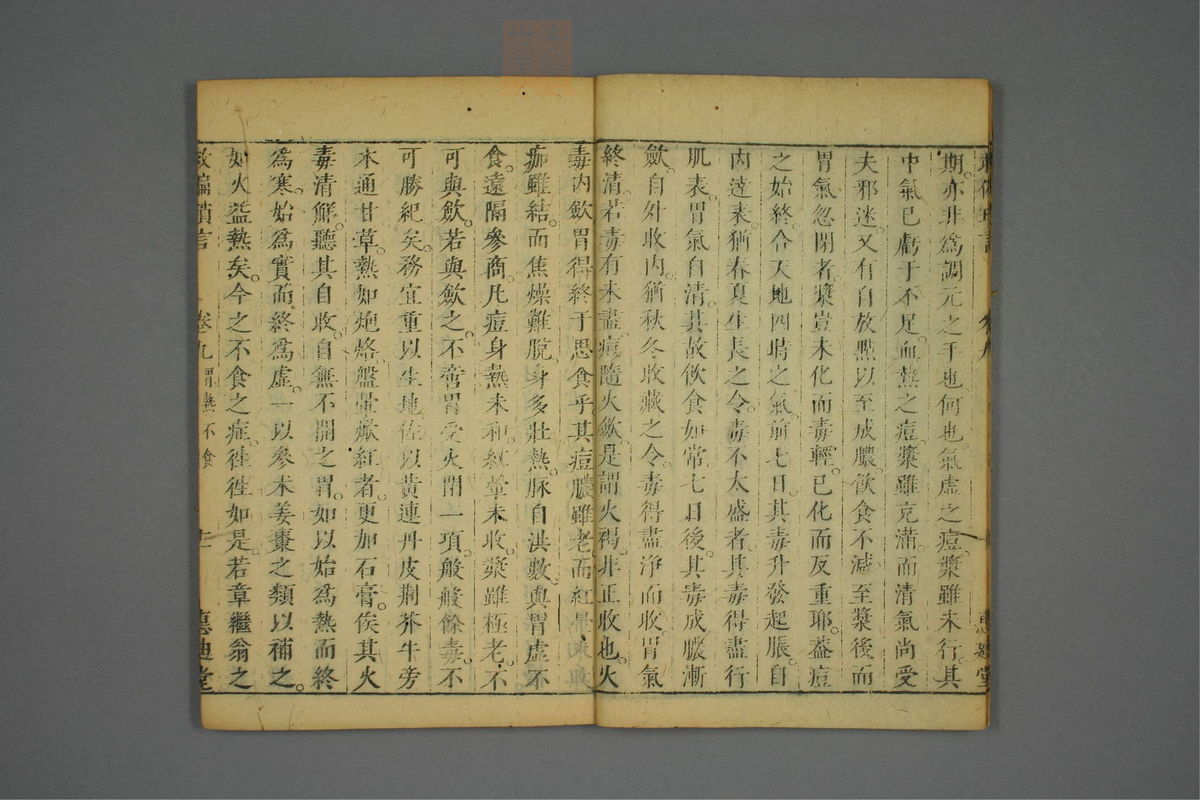 期亦非爲調元之手也何也氣虛之痘漿雖未行其
中氣已虧于不足血熱之痘漿雖克滿而清氣尚受
夫邪迷又有自放點以至成膿飲食不減至漿後而
胃氣忽閉者漿豈未化而毒輕已化而反重耶蓋痘
之始終合天地四時之氣前七日其毒升發起脹自
內達表猶春夏生長之令毒不太盛者其毒得盡行
肌表胃氣自清其故飲食如常七日後其毒成膿漸
斂自外收內猶秋冬收藏之令毒得盡淨而收胃氣
終清若毒有未盡痘隨火斂是謂火褐非正收也火
毒內歛胃得終于思食乎其痘膿雖老而紅
痂雖結而焦燥難脫身多壯熱脉自洪數與胃虛不
食遠隔參商凡痘身熱未和紅暈未收漿雖極老不
可與飲若與飲之不啻胃受火閉一項般般餘毒不
可勝紀矣務宜重以生地佐以黃連丹皮荆芥牛旁
木通甘草熱如炮烙盤暈燉紅者更加石膏俟其火
毒清解聽其自收自無不開之胃如以始爲熱而終
爲寒始爲實而終爲虛一以參术姜棗之類以補之
如火益熱矣今之不食之症徃徃如是若章繼翁之
救偏瑣言 卷九 胃熱不食 十一 惠迪堂